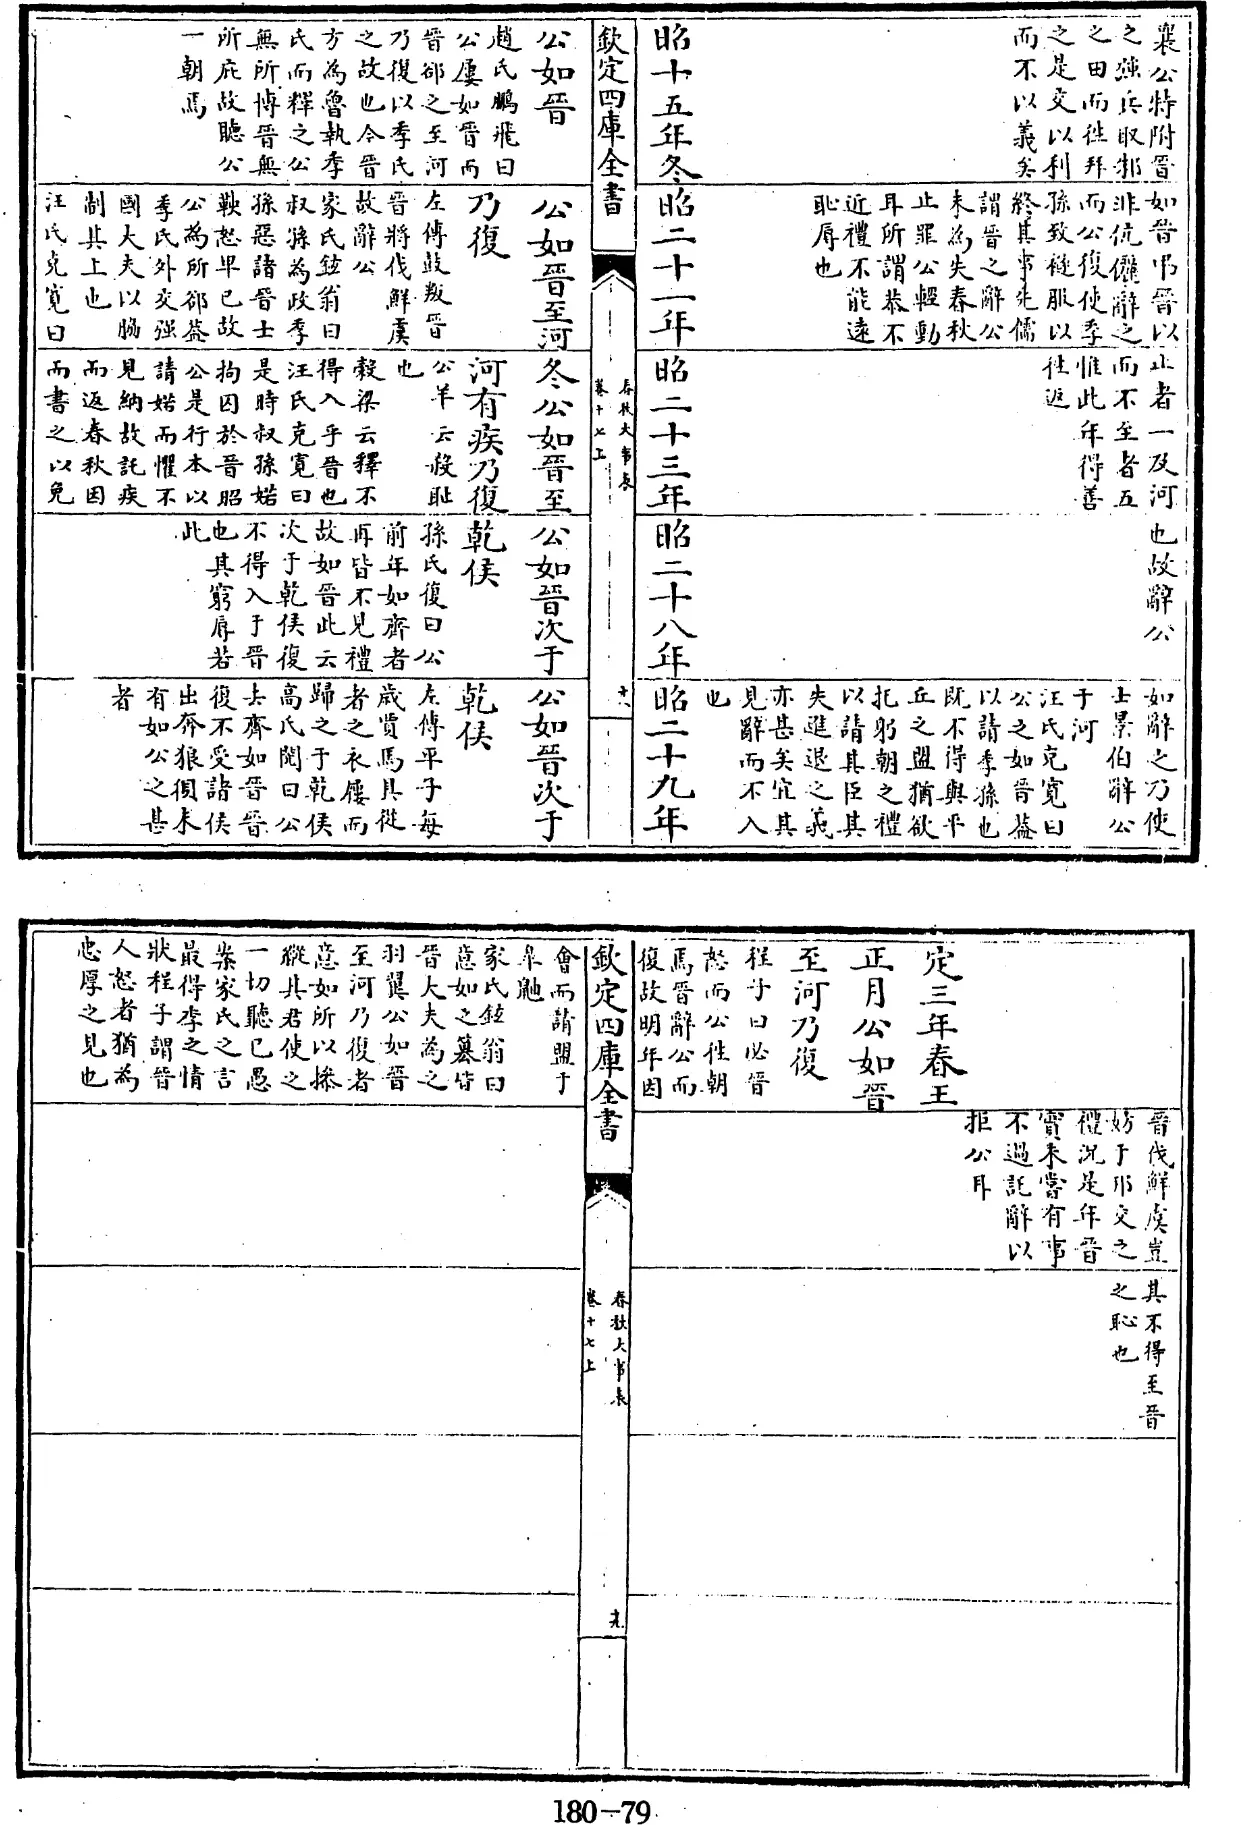 襄公特附晉
之強兵取邾
之田而徃拜
之是交以利
而不以義矣
昭十五年冬
公如晉
趙氏鵬飛曰
公屢如晉而
晉郤之至河
乃復以季氏
之故也今晉
方為魯執季
氏而釋之公
無所愽晉無
所庇故聽公
一朝焉
如晉弔晉以
非伉儷辭之
而公復使季
孫致襚服以
終其事先儒
謂晉之辭公
未為失春秋
止罪公輕動
耳所謂恭不
近禮不能遠
恥辱也
昭二十一年
公如晉至河
乃復
左傳鼓叛晉
晉將伐鮮虞
故辭公
家氏鉉翁曰
叔孫為政季
孫惡諸晉士
鞅怒卑已故
公為所郤葢
季氏外交强
國大夫以脇
制其上也
汪氏克寛曰
止者一及河
而不至者五
惟此年得善
徃返
昭二十三年
冬公如晉至
河有疾乃復
公羊云殺恥
也
榖梁云釋不
得入乎晉也
汪氏克寛曰
是時叔孫婼
拘囚於晉昭
公是行本以
請婼而懼不
見納故託疾
而返春秋因
而書之以免
也故辭公
昭二十八年
公如晉次于
乾侯
孫氏復曰公
前年如齊者
再皆不見禮
故如晉此云
次于乾侯復
不得入于晉
也其窮辱若
此
如辭之乃使
士景伯辭公
于河
汪氏克寛曰
公之如晉葢
以請季孫也
既不得與平
丘之盟猶欲
躬朝之禮
以請其臣其
失進退之義
亦甚矣宜其
見辭而不入
也
昭二十九年
公如晉次于
乾侯
左傳平子每
歲賈馬具從
者之衣屨而
歸之于乾侯
高氏閌曰公
去齊如晉晉
復不受諸侯
出奔狼狽未
有如公之甚
者
欽定四庫全書
春秋大事表
卷十七上
十八
定三年春王
正月公如晉
至河乃復
程子曰必晉
怒而公徃朝
焉晉辭公而
復故明年因
會而請盟于
臯鼬
家氏鉉翁曰
意如之簒皆
晉大夫為之
羽翼公如晉
至河乃復者
意如所以摻
縱其君使之
一切聽已愚
案家氏之言
最得李之情
狀程子謂晉
人怒者猶為
忠厚之見也
晉伐鮮虞豈
妨于邦交之
禮況是年晉
實未嘗有事
不過託辭以
拒公耳
其不得至晉
之恥也
欽定四庫全書
春秋大事表
卷十七上
十九
180-79